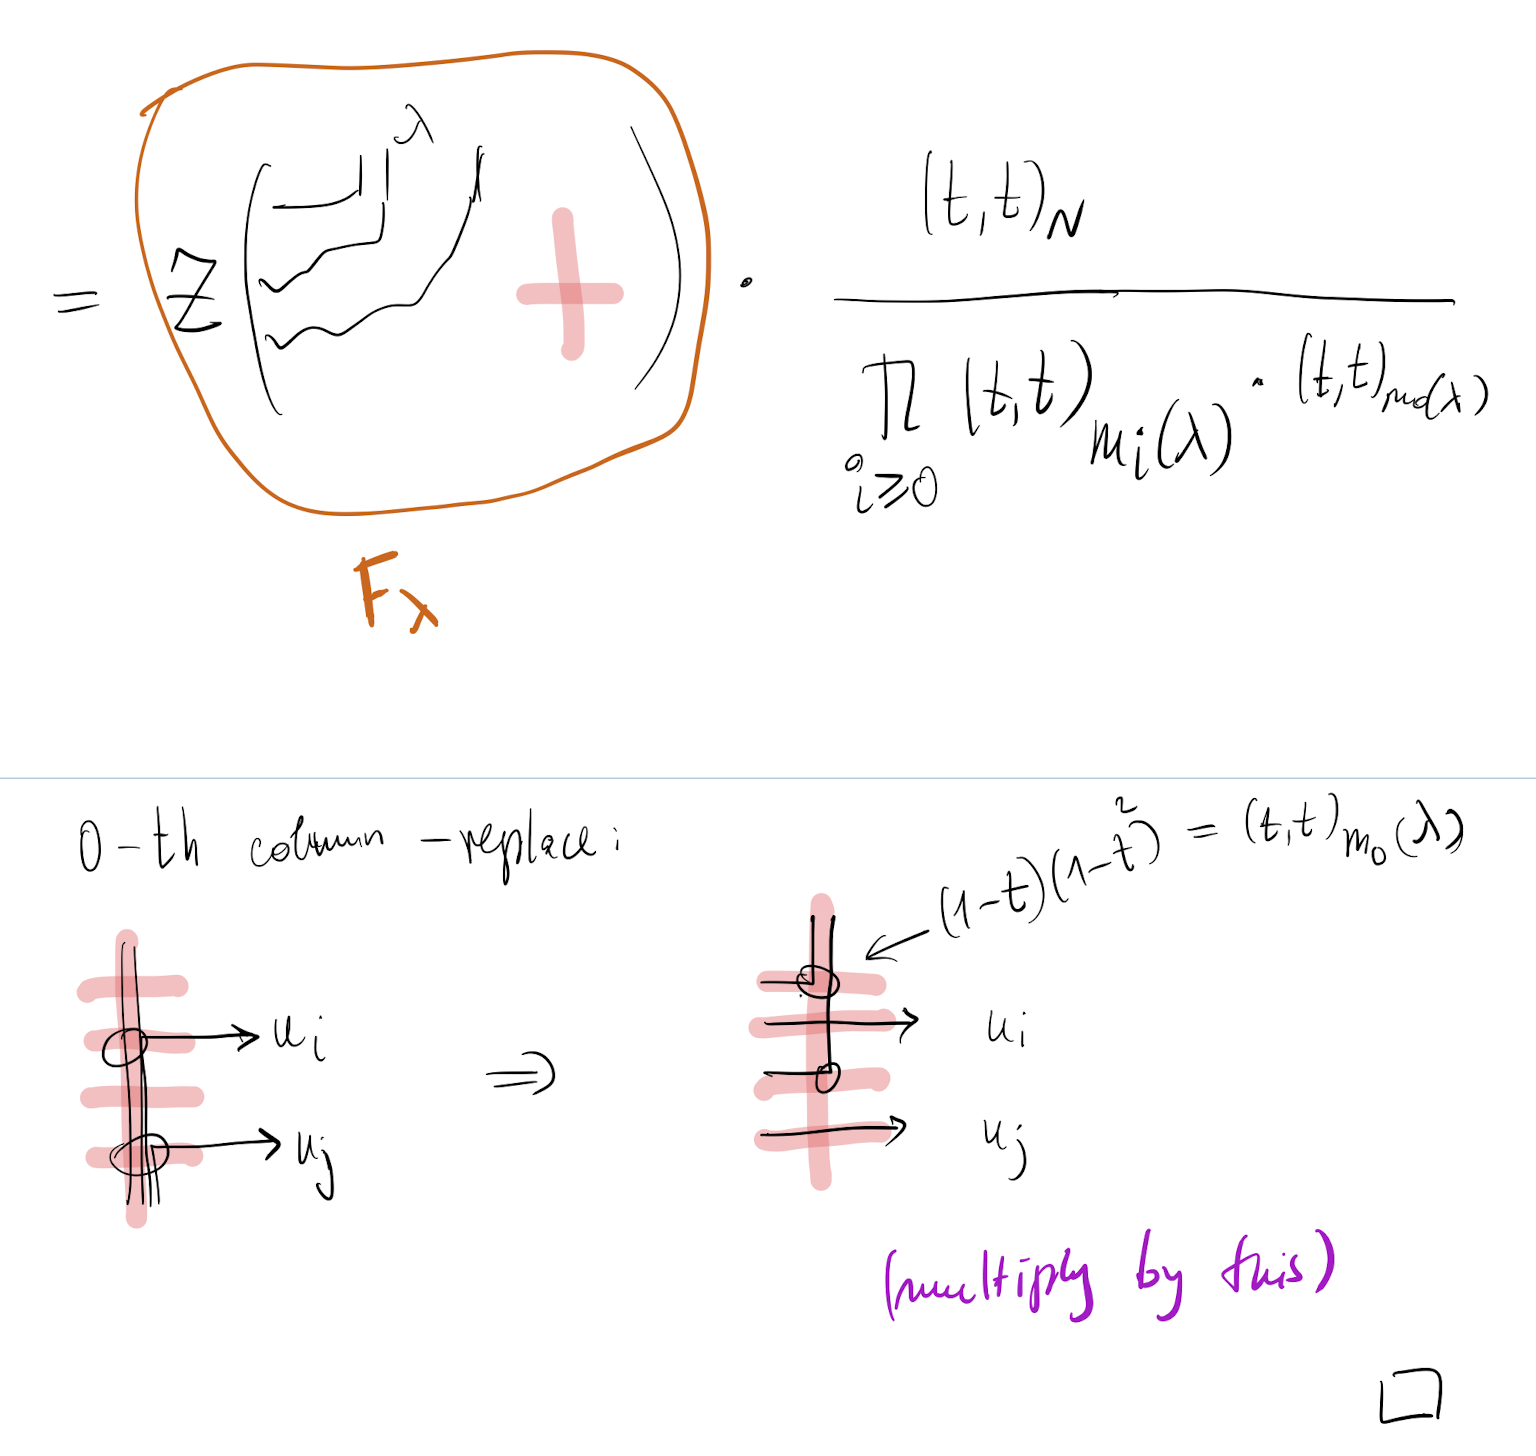 = Z ( λ ) · (t,t)_N / ∏_{i≥0} (t,t)_{m_i(λ)} · (t,t)_{m_0(λ)}
F_λ
0-th column - replace:
(1-t)(1-t²) = (t,t)_{m_0(λ)}
u_i ⇒ u_i
u_j u_j
(multiply by this)
□